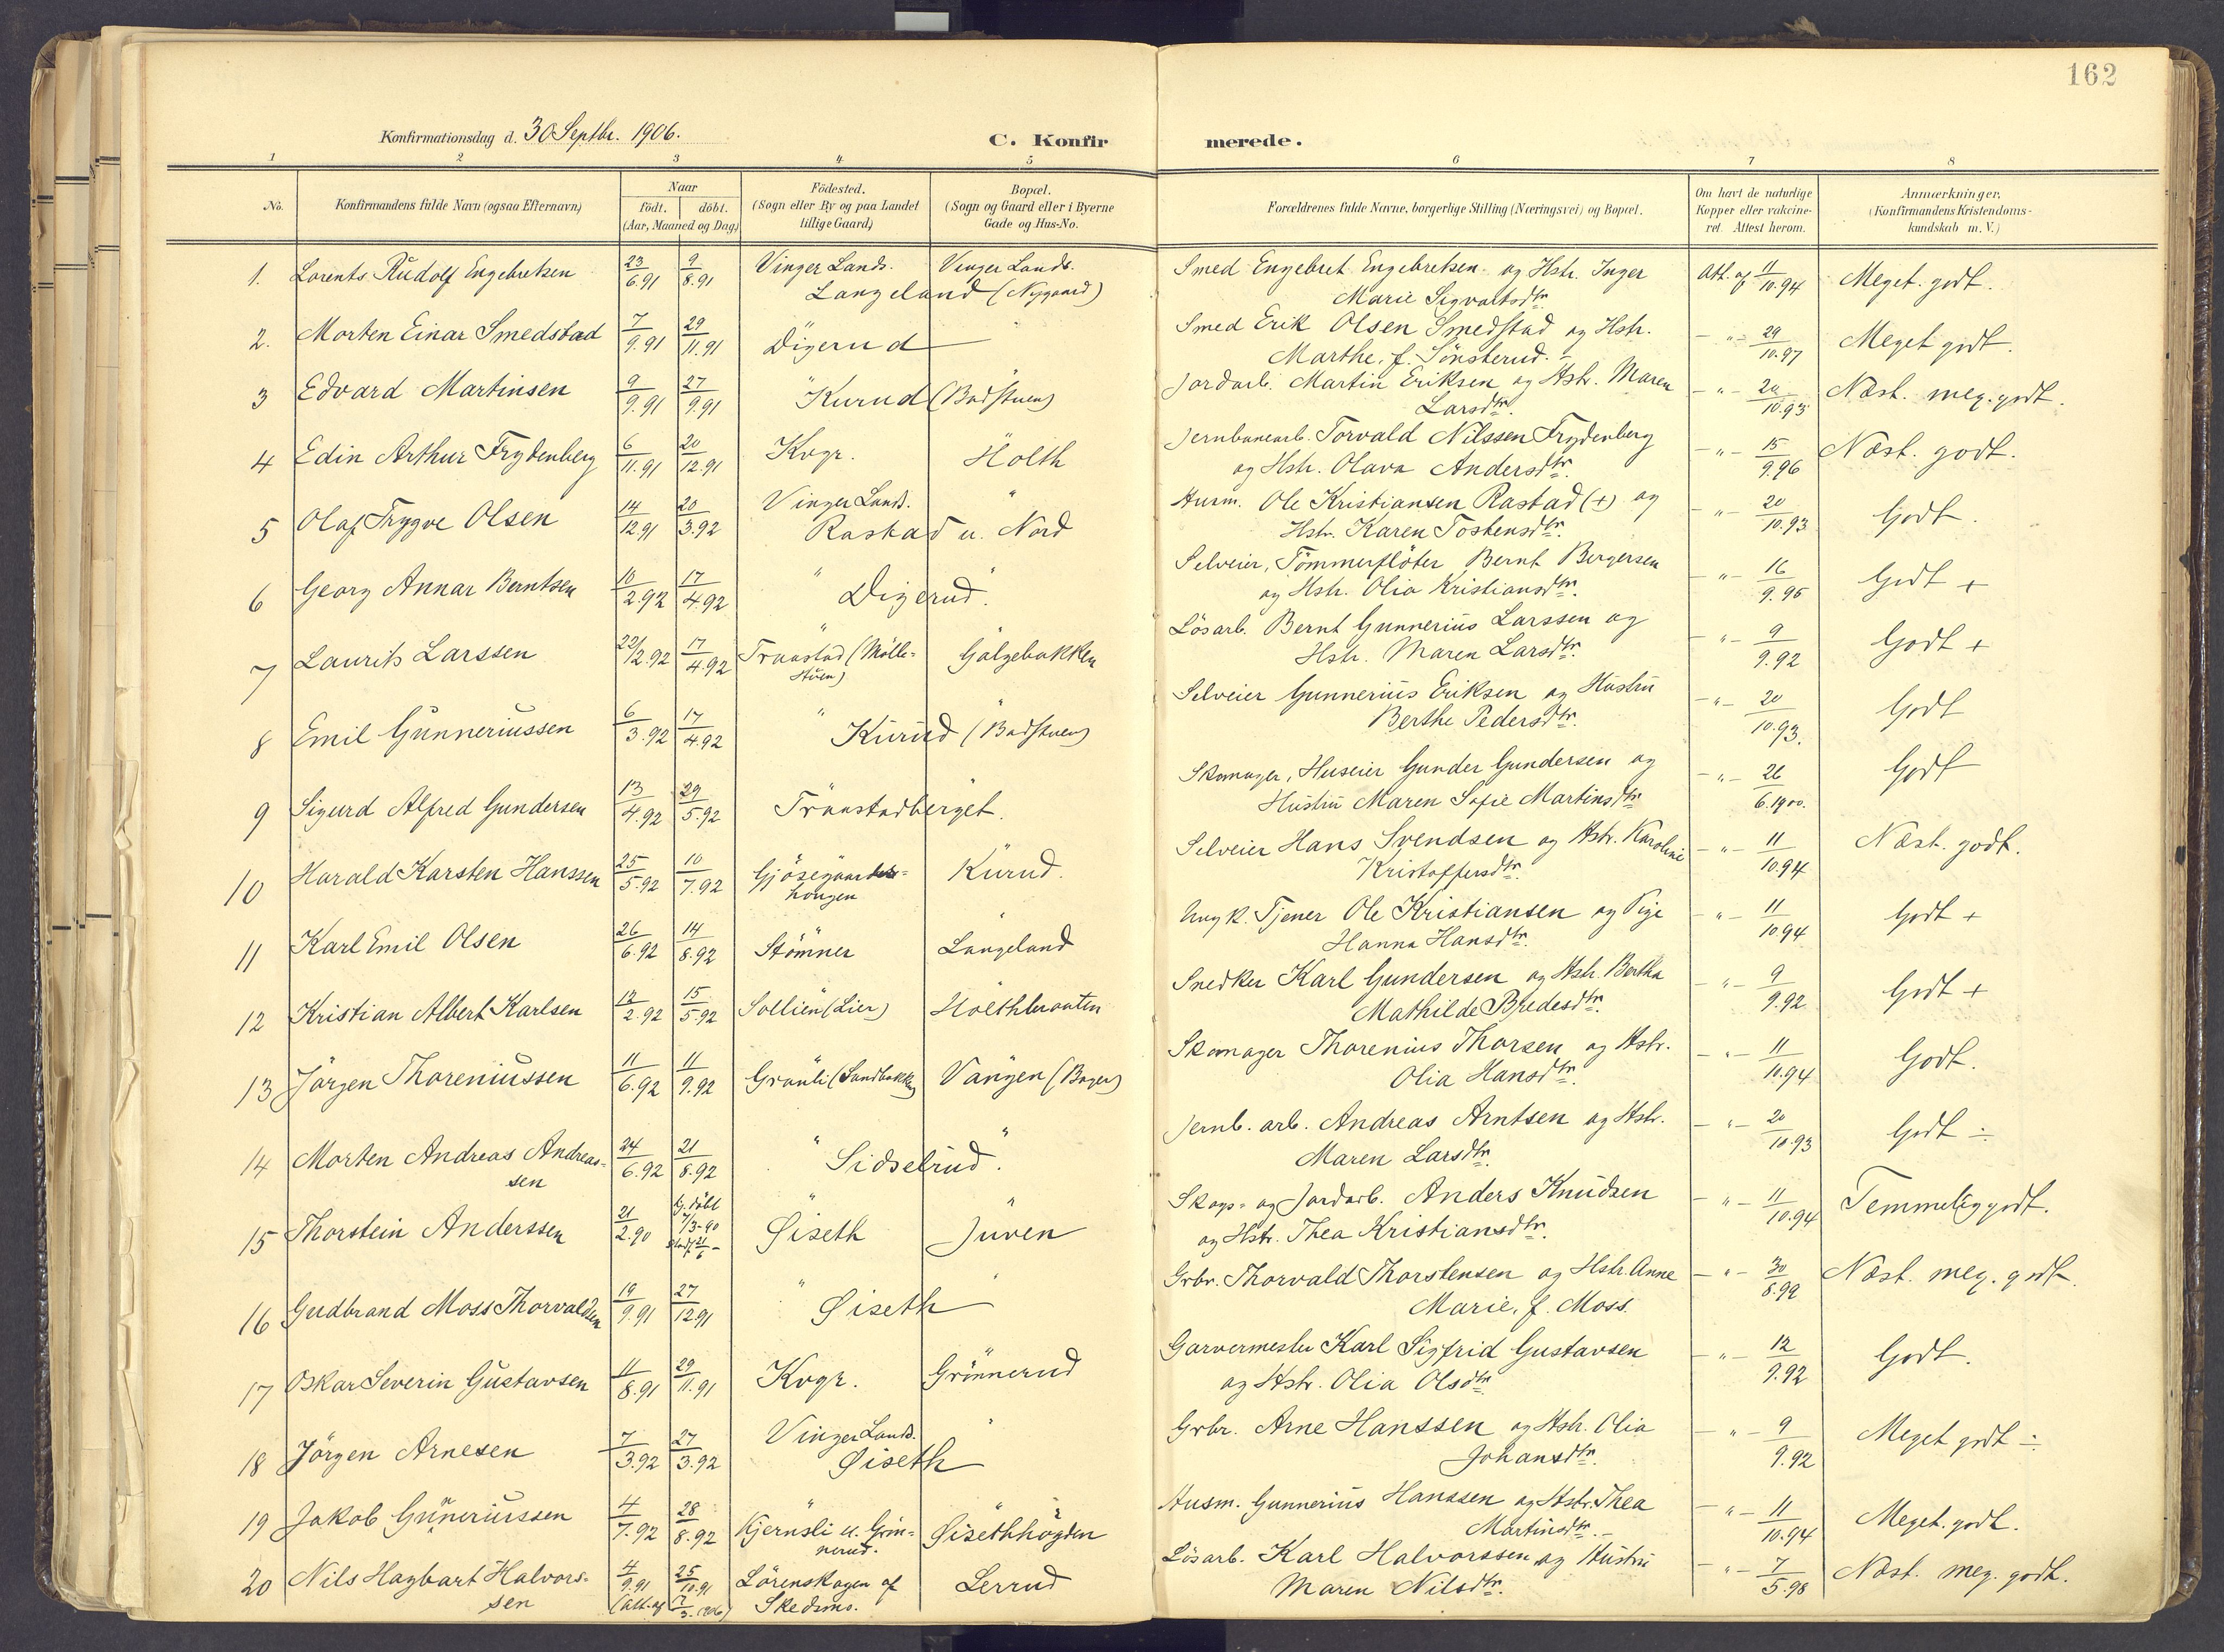 162
Konfirmationsdag d. 30 Septbr. 1906.
C. Konfirmerede.
1 2 3 4 5 6 7 8
No.
Konfirmandens fulde Navn (ogsaa Efternavn)
Naar
født. døbt.
(Aar, Maaned og Dag)
Födested.
(Sogn eller By og paa Landet
tillige Gaard)
Bopæl.
(Sogn og Gaard eller i Byerne
Gade og Hus-No.
Forældrenes fulde Navne, borgerlige Stilling (Næringsvei) og Bopæl.
Om havt de naturlige
Kopper eller vakcine-
ret. Attest herom.
Anmærkninger,
(Konfirmandens Kristendoms-
kundskab m. V.)
1. Lorents Rudolf Engebretsen 23/6.91 9/8.91 Vinger Lands. Vinger Lands.
Langeland (Nygaard)
Smed Engebret Engebretsen og Hstr. Inger
Marie Sigvartsdtr.
Att. af 11/10.94 Meget godt.
2. Morten Einar Smedstad 7/9.91 29/11.91 Digerud
Smed Erik Olsen Smedstad og Hstr.
Marthe, f. Sönsterud.
-"- 29/10.97 Meget godt.
3 Edvard Martinsen 9/9.91 27/9.91 Kurud (Badstuen)
Jordarb. Martin Eriksen og Hstr. Maren
Larsdtr.
-"- 20/10.93 Næst. meg. godt.
4 Edin Arthur Frydenberg 6/11.91 20/12.91 Kvgr. Holth
Jernbanearb. Torvald Nilssen Frydenberg
og Hstr. Olava Andersdtr.
-"- 15/9.96 Næst. godt.
5 Olaf Trygve Olsen 14/12.91 20/3.92 Vinger Lands. "
Rastad u. Nord
Husm. Ole Kristiansen Rastad (+) og
Hstr. Karen Tostensdtr.
-"- 20/10.93 Godt.
6 Georg Annar Berntsen 10/2.92 17/4.92 " Digerud. "
Selveier, Tömmerflöter Bernt Bergersen
og Hstr. Olia Kristiansdtr.
-"- 16/9.95 Godt +
7 Laurits Larssen 22/12.92 17/4.92 Traastad (Mölle-
stuen) Gålgebakken
Lösarb. Bernt Gunnerius Larssen og
Hstr. Maren Larsdtr.
-"- 9/9.92 Godt +
8 Emil Gunneriussen 6/3.92 17/4.92 " Kurud (Badstuen)
Selveier Gunnerius Eriksen og Hustru
Berthe Pedersdtr.
-"- 20/10.93. Godt
9 Sigurd Alfred Gundersen 13/4.92 29/5.92 Traastadberget.
Skomager, Huseier Gunder Gundersen og
Hustru Maren Sofie Martinsdtr.
-"- 26/6.1900. Godt
10 Harald Karsten Hanssen 25/5.92 10/7.92 Gjösegaards-
haugen Kurud.
Selveier Hans Svendsen og Hstr. Karoline
Kristoffersdtr.
-"- 11/10.94 Næst. godt.
11 Karl Emil Olsen 26/6.92 14/8.92 Stömner Langeland
Ungk. Tjener Ole Kristiansen og Pige
Hanna Hansdtr.
-"- 11/10 94 Godt +
12 Kristian Albert Karlsen 12/2.92 15/5.92 Sollien (Lier) Holthbraaten
Snedker Karl Gundersen og Hstr. Bertha
Mathilde Bredesdtr.
-"- 9/9.92 Godt +
13 Jörgen Thoreniussen 11/6.92 11/9.92 Granli (Sandbakken) Vangen (Bager)
Skomager Thorenius Thorsen og Hstr.
Olia Hansdtr.
-"- 11/10.94 Godt.
14 Morten Andreas Andreas-
sen 24/6.92 21/8.92 " Sidselrud. "
Jernb. arb. Andreas Arntsen og Hstr.
Maren Larsdtr.
-"- 20/10.93 Godt ÷
15 Thorstein Anderssen 21/2.90 hj. döbt 7/3-90 Öiseth Juven
Skogs- og Jordarb. Anders Knudsen
og Hstr. Thea Kristiansdtr.
-"- 11/10.94 Temmelig godt.
16 Gudbrand Moss Thorvaldsen 19/9.91 27/12.91 " Öiseth
Grbr. Thorvald Thorstensen og Hstr. Anne
Marie, f. Moss.
-"- 30/8.99 Næst. meg. godt.
17 Oskar Severin Gustavsen 11/8.91 29/11.91 Kvgr. Grönnerud
Garvermester Karl Sigfrid Gustavsen
og Hstr. Olia Olsdtr.
-"- 12/9.92 Godt.
18 Jörgen Arnesen 7/3.92 27/3.92 Vinger Lands. "
Öiseth
Grbr. Arne Hanssen og Hstr. Olia
Johansdtr.
-"- 9/9.92 Meget godt ÷
19 Jakob Guneriussen 4/7.92 28/8.92 Kjernsli u. Grön-
nerud. Öisethhögden
Husm. Gunnerius Hanssen og Hstr. Thea
Martinsdtr.
-"- 11/10.94 Meget godt.
20 Nils Hagbart Halvors-
sen 4/9.91 25/10.91 Lörenskogen af
Skedsmo. Lerrud
(Att. af 7/3-1906)
Lösarb. Karl Halvorssen og Hustru
Maren Nilsdtr.
-"- 7/5.98 Næst. meg. godt.